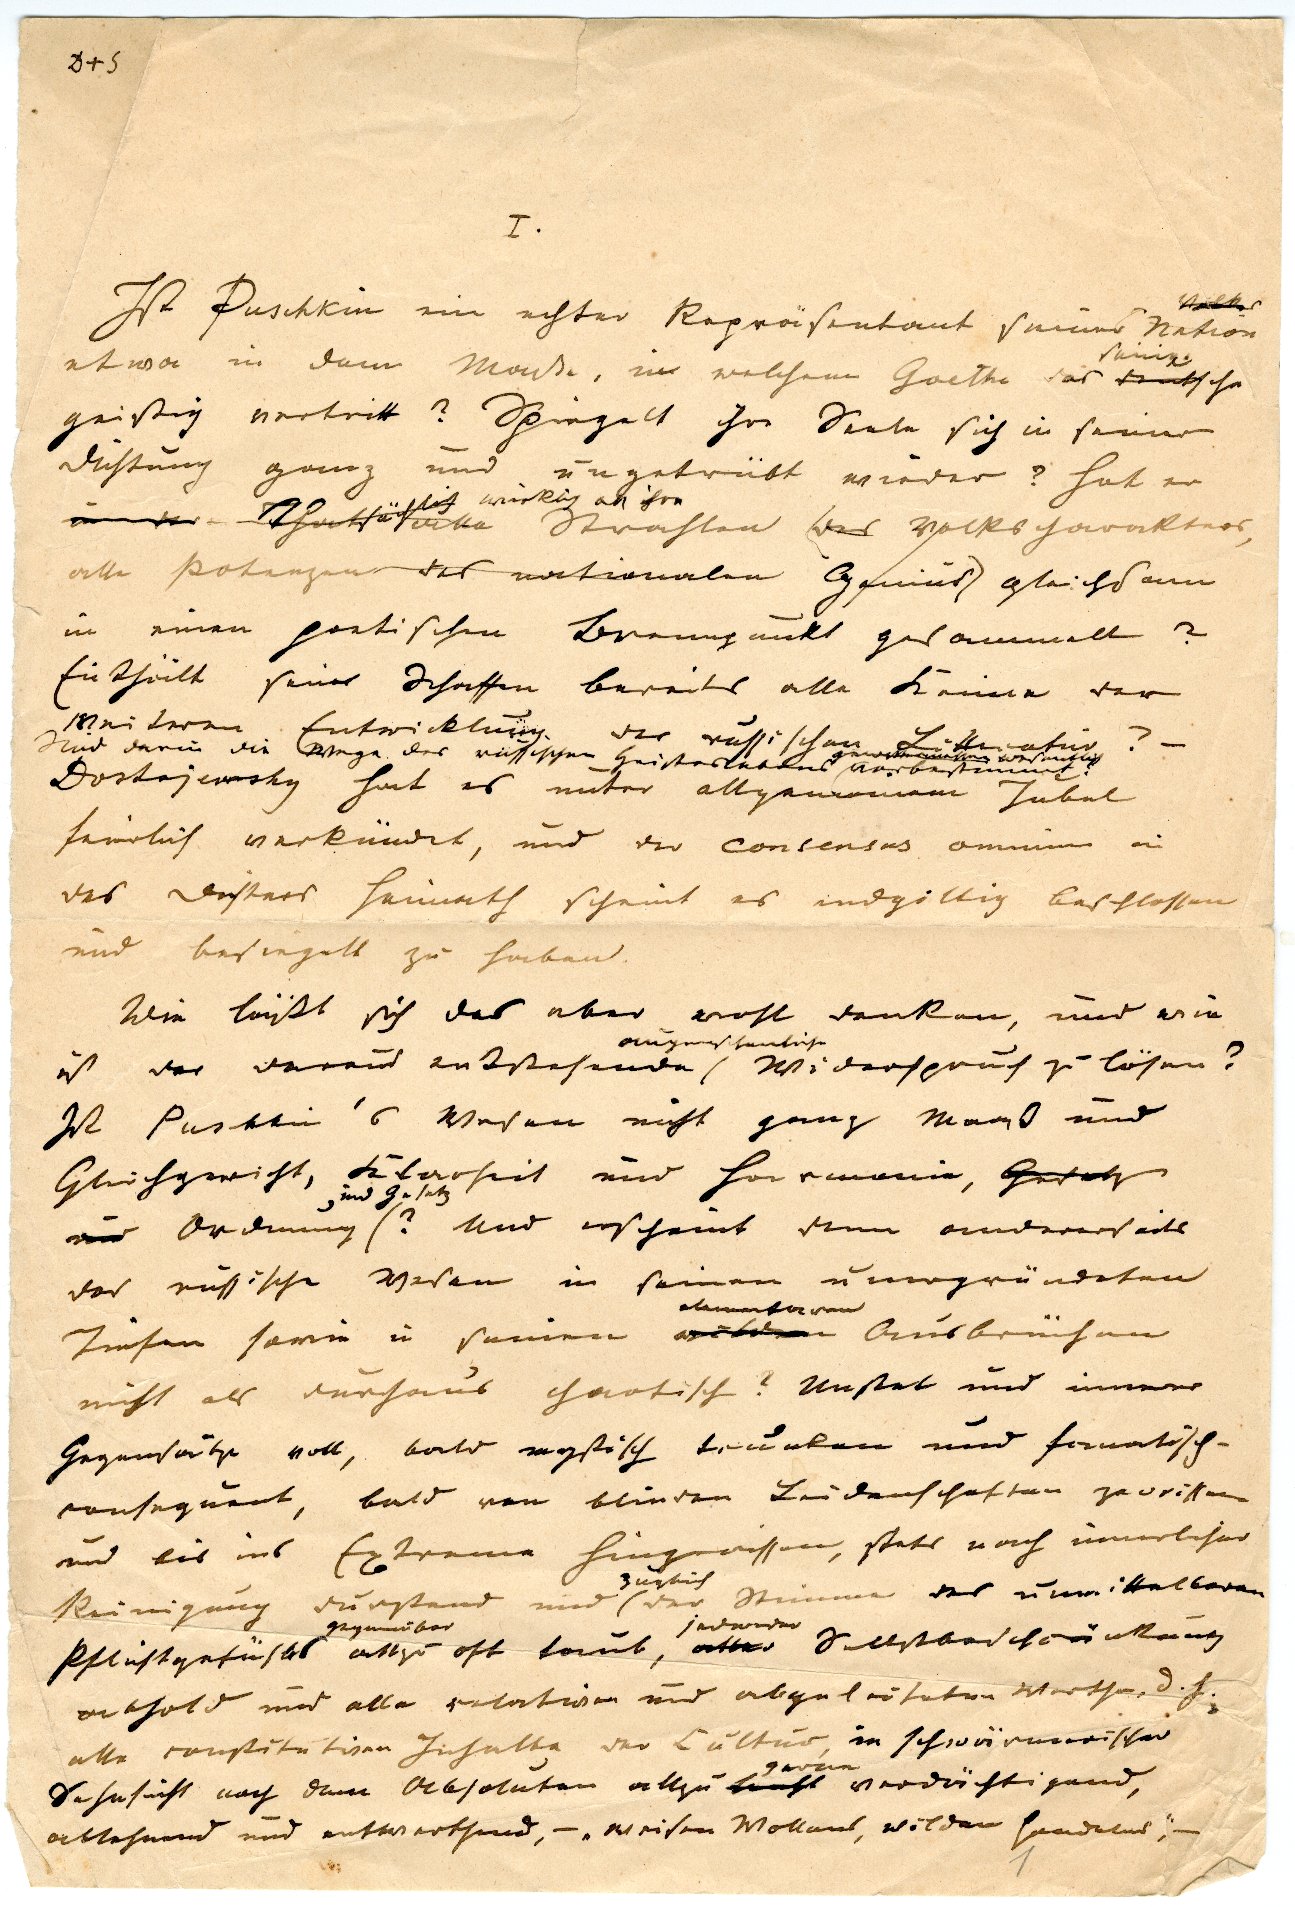 D+S
I.
Volkes
Ist Puschkin ein echter Repräsentant seiner Nation
seinige
etwa in dem Maße, in welchem Goethe das deutsche
geistig vertritt? Spiegelt ihre Seele sich in seiner
Dichtung ganz und ungetrübt wieder? Hat er
wirklich all ihre
in der Thatsächlich alle Strahlen des Volkscharakters,
alle Potenzen des nationalen Genius gleichsam
in einen poetischen Brennpunkt gesammelt?
Enthält sein Schaffen bereits alle Keime der
weiteren Entwicklung der russischen Litteratur? –
Sind darin die Wege des russischen Geisteslebens vorbestimmt?
Dostojewsky hat es unter allgemeinem Jubel
feierlich verkündet, und der consensus omnium in
des Dichters Heimath scheint es endgiltig beschlossen
und besiegelt zu haben.
Wie läßt sich das aber wohl denken, und wie
augenscheinliche
ist der daraus entstehende Widerspruch zu lösen?
Ist Puschkin's Wesen nicht ganz Maaß und
Gleichgewicht, Klarheit und Harmonie, Gesetz
und Gesetz
und Ordnung? Und erscheint denn andererseits
das russische Wesen in seinen unergründeten
elementaren
Tiefen sowie in seinen wilden Ausbrüchen
nicht als durchaus chaotisch? Unstet und innerer
Gegensätze voll, bald mystisch trunken und fanatisch-
consequent, bald von blinden Leidenschaften zerrissen
und bis ins Extreme hingerissen, stets nach innerlicher
zugleich
Reinigung dürstend und der Stimme des unmittelbaren
gegenüber jedweder
Pflichtgefühls allzu oft taub, aller Selbstbeschränkung
abhold und alle relativen und abgeleiteten Werthe, d. h.
alle constitutiven Inhalte der Cultur, in schwärmerischer
gerne
Sehnsucht nach dem Absoluten allzu leicht verdächtigend,
ablehnend und entwerthend, – „weisen Wollens, wilden Handelns", –
1